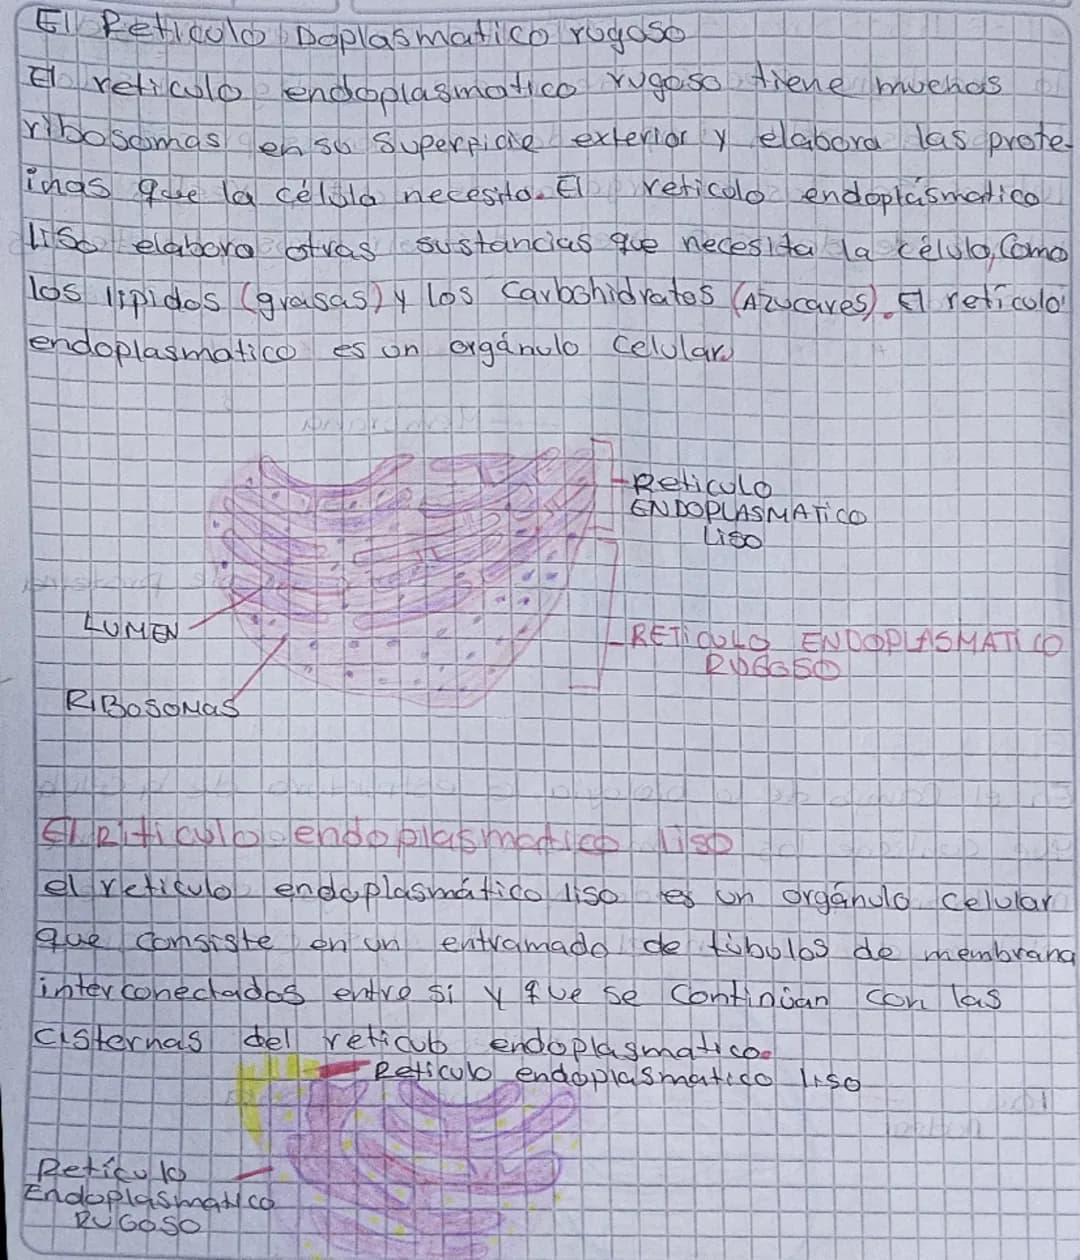 El Reticulo Doplasmatico rugoso
El reticulo endoplasmatico rugoso tiene muchos
ribosomas en su Superficie exterior y elabora las prote-
inas que la célula necesita. El reticolo endoplásmatico
liso elabora otras sustancias que necesita la célula, Como
los lipidos (grasas) y los Carbohidratos (Azucares). El retículo
endoplasmatico es un orgánulo Celular
Reticulo
ENDOPLASMATiCO
Liso
LUMEN
RETiCULO ENDOPLASMATICO
RUGOSO
RiBOSOMAS
El Riticulo endoplasmatico liso
el reticulo endoplasmático liso es un orgánulo celular
que consiste en un entramado de túbulos de membrana
interconectados entre si y que se Continúan con las
cisternas del reticulo endoplasmatico.
Reticulo endoplasmatico liso
Retículo
Endoplasmatico
RUGOSO